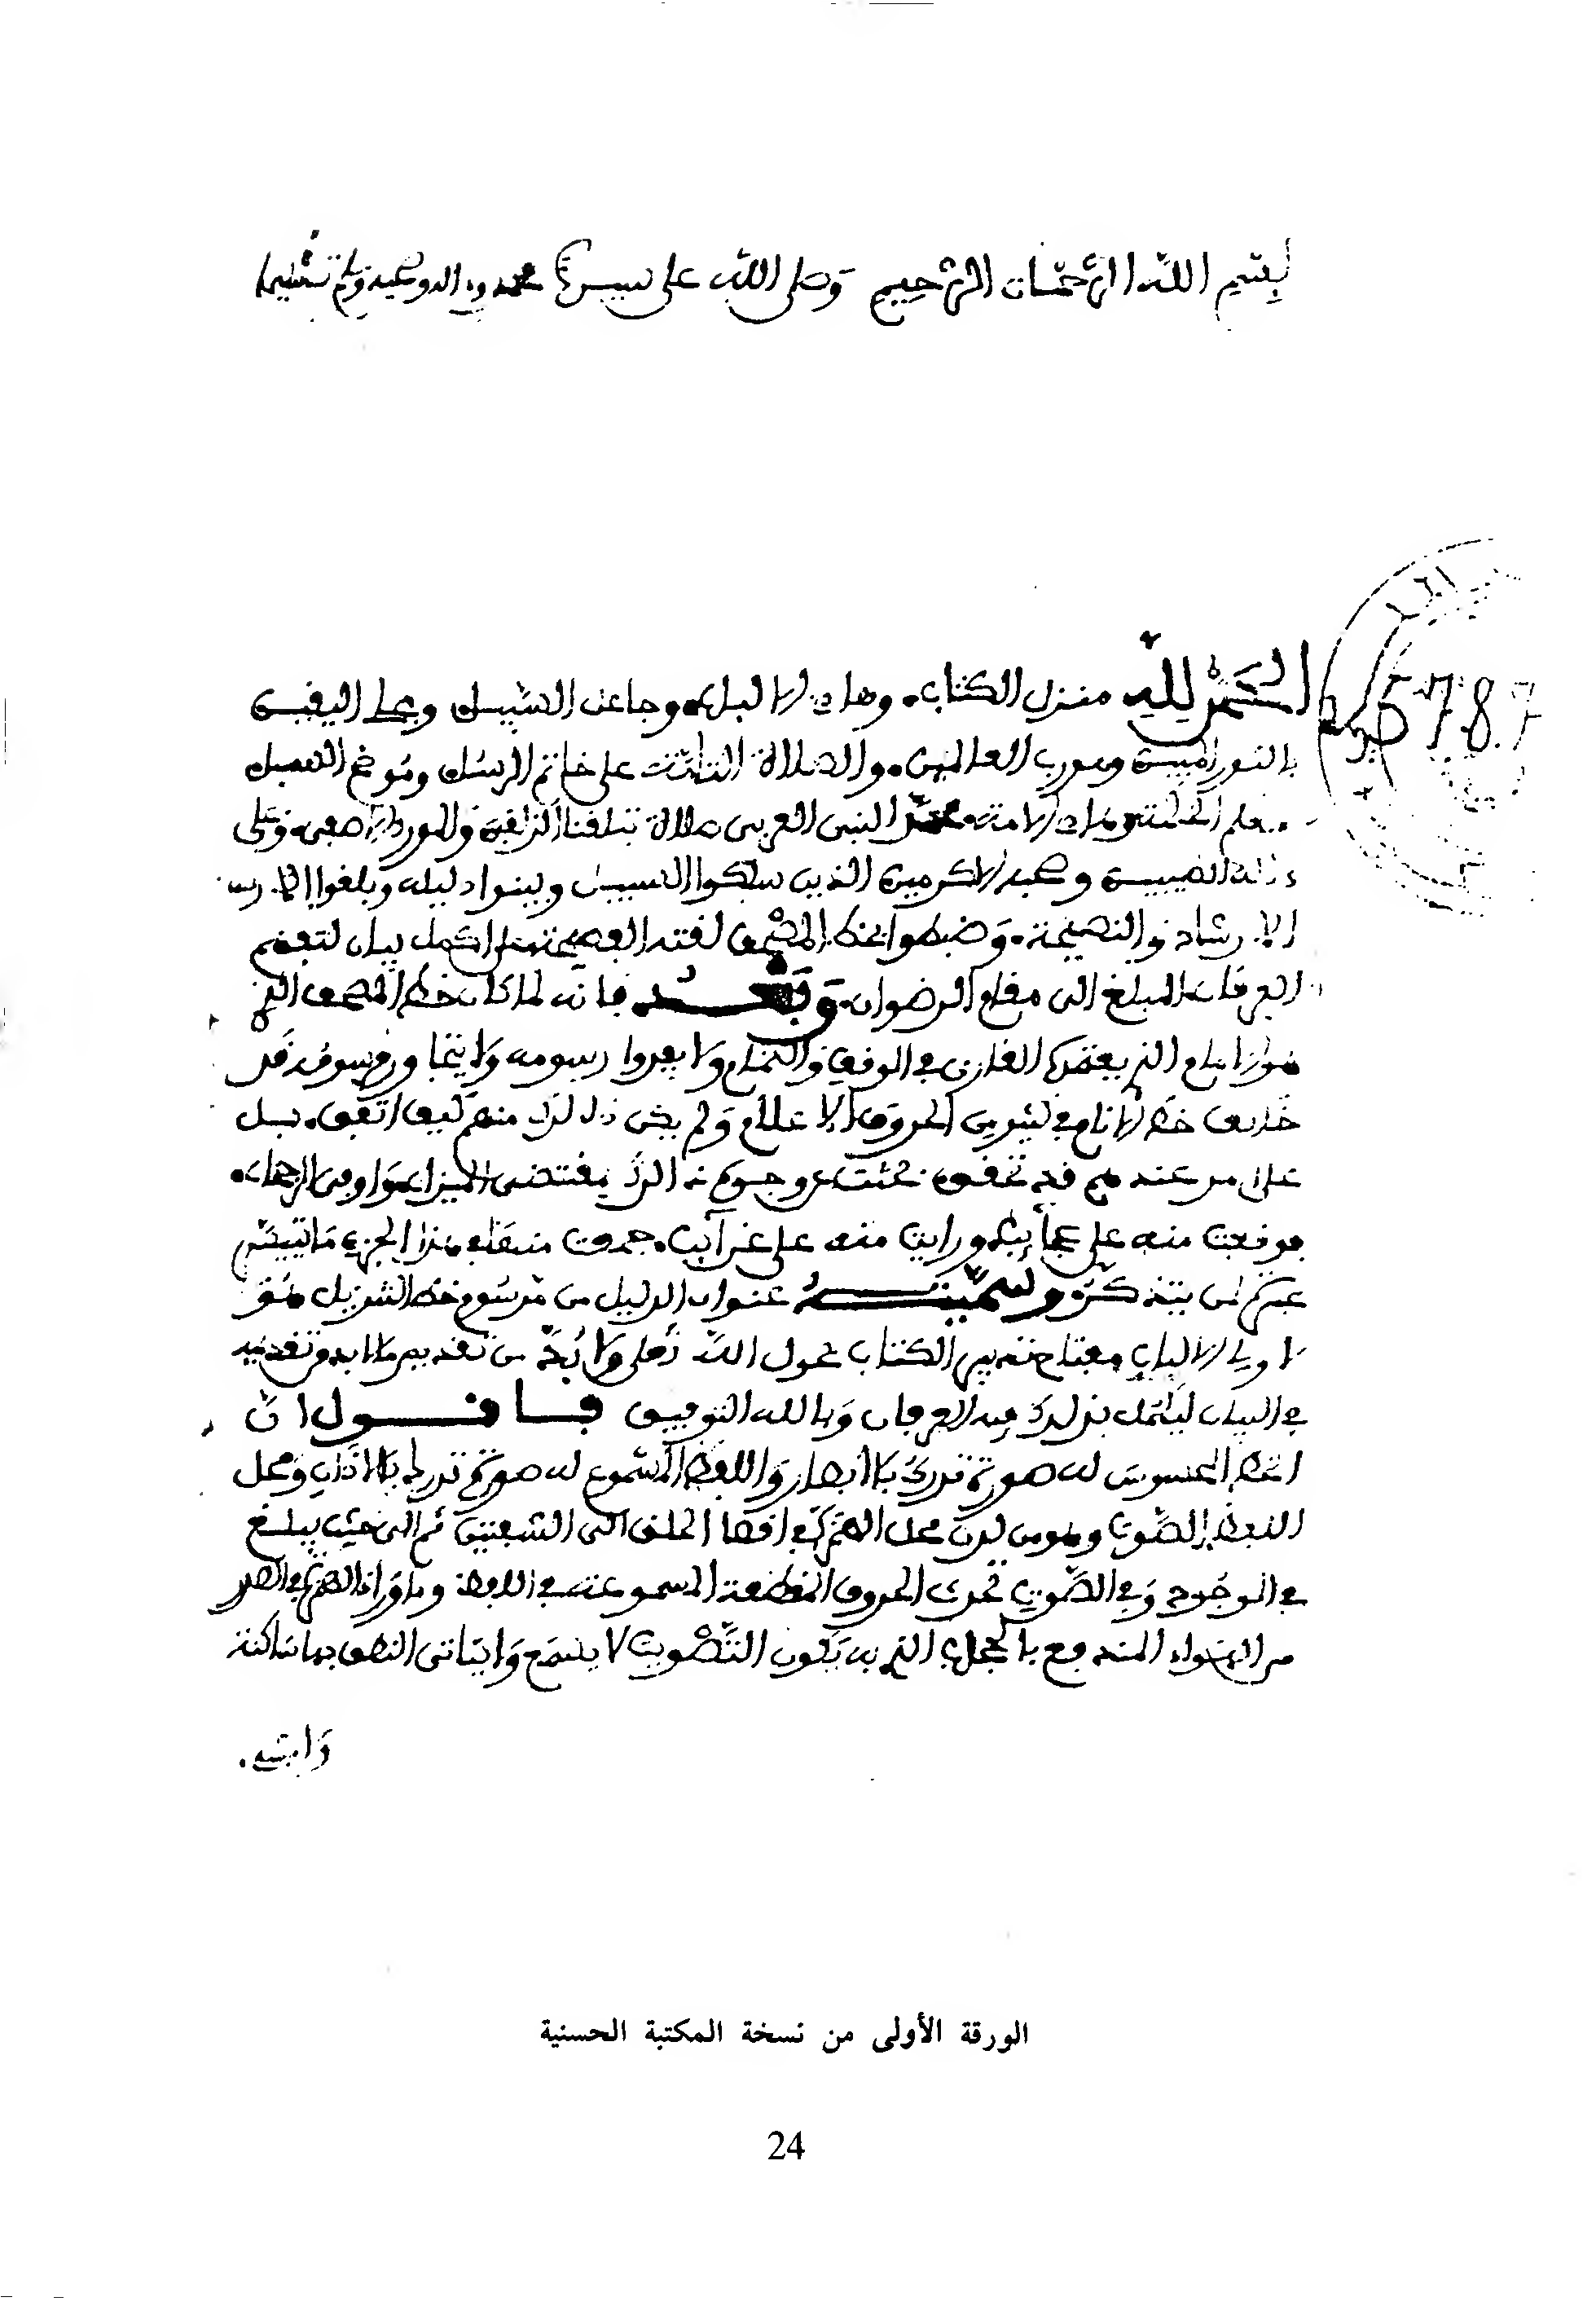 بسم الله الرحمان الرحيم وصلى الله على سيدنا محمد وءاله وصحبه وسلم تسليما
الحمد لله منزل الكتاب وهادي الألباب وجاعل السبيل ومحلي اليقين
بالنور المبين وهو رب العالمين والصلاة التامة على خاتم الرسل وموضح السبل
معلم الحكمة وهادي الأمة محمد النبي العربي صلاة تبلغنا الزلفى والمورد الأصفى وعلى
ءاله الطيبين وصحبه الأكرمين الذين سلكوا السبيل وبينوا دليله وبلغوا إلينا
الإرشاد والنصيحة وضبطوا بخط المصحف لغته الفصيحة على أكمل بيان لتفهم
الفرقان المبلغ إلى مقام الرضوان وبعد فإنه لما كان خط المصحف الذي
هو الإمام الذي يعتمده القارئ في الوقف والتمام ولا يعدوا رسومه ولا يتجاوز مرسومه قد
خالف خط الأنام في كثير من الحروف والأعلام ولم يكن ذلك منهم كيف اتفق بل
على أمر عندهم قد تحقق بحثت عن وجوه ذلك بمقتضى الميزان وأوفى الرجحان
فوقفت منه على عجائب ورأيت منه على غرائب جمعت منها في هذا الجزء ما تيسر
عبرة لمن يتذكر وسميته عنوان الدليل من مرسوم خط التنزيل هو
لأولي الألباب مفتاح تدبر الكتاب بحول الله تعلى ولا بد من تقديم ما لا بد من تقديمه
في البيان ليكمل بذلك فيه العرفان وبالله التوفيق فأقول إن
الخط المحسوس له صورة تدرك بالأبصار واللفظ المسموع له صورة تدرك بالآذان ومحل
اللفظ الصوت وهو من لدن محل الهمزة في أقصا الحلق إلى الشفتين ثم إلى حيث يبلغ
في الوجود وفي الصوت تحدث الحروف المقطعة المسموعة في اللفظ وما وراء الهمزة في الصدر
من الهواء المندفع بالحجاب الذي به يكون التصويت لا يسمع ولا يتأتى النطق بها ساكنة
الورقة الأولى من نسخة المكتبة الحسنية
24